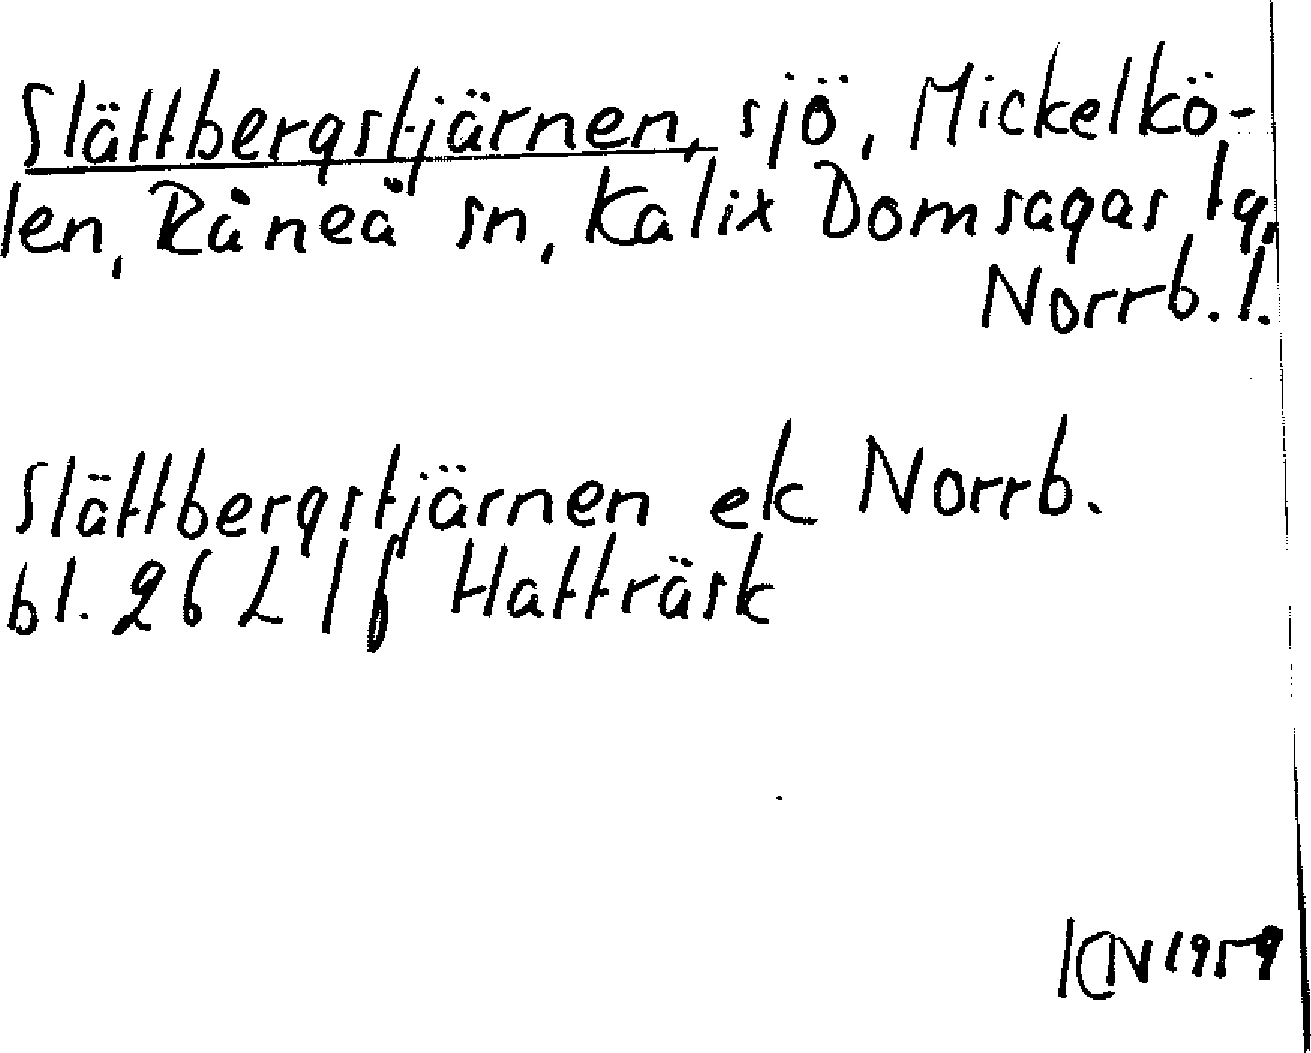 Slättbergstjärnen, sjö, Mickelkö-
len, Råneå sn, Kalix Domsagas tg,
Norrb. l.
Slättbergstjärnen ek Norrb.
bl. 26 L 1 f Hatträsk
1959